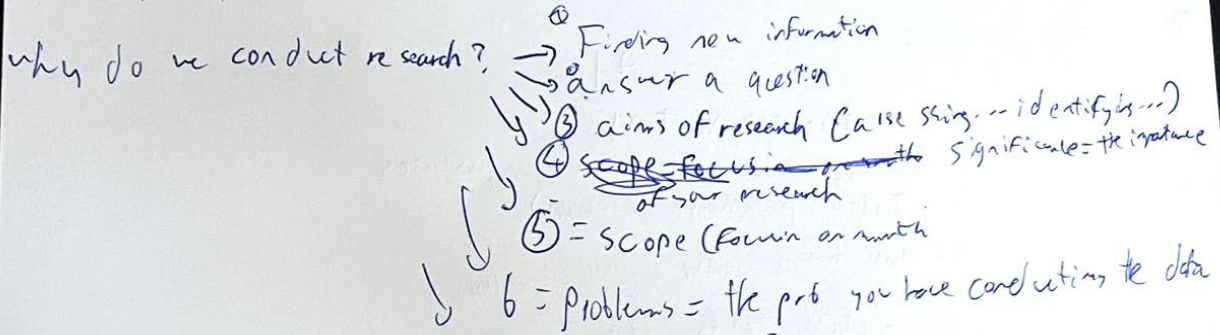 why do we conduct research? → ① Finding new information
→ ② answer a question
③ aims of research (assessing... identifying...)
④ significance = the importance
of your research
⑤ = scope (Focusin on
6 = problems = the prob you have conducting the data